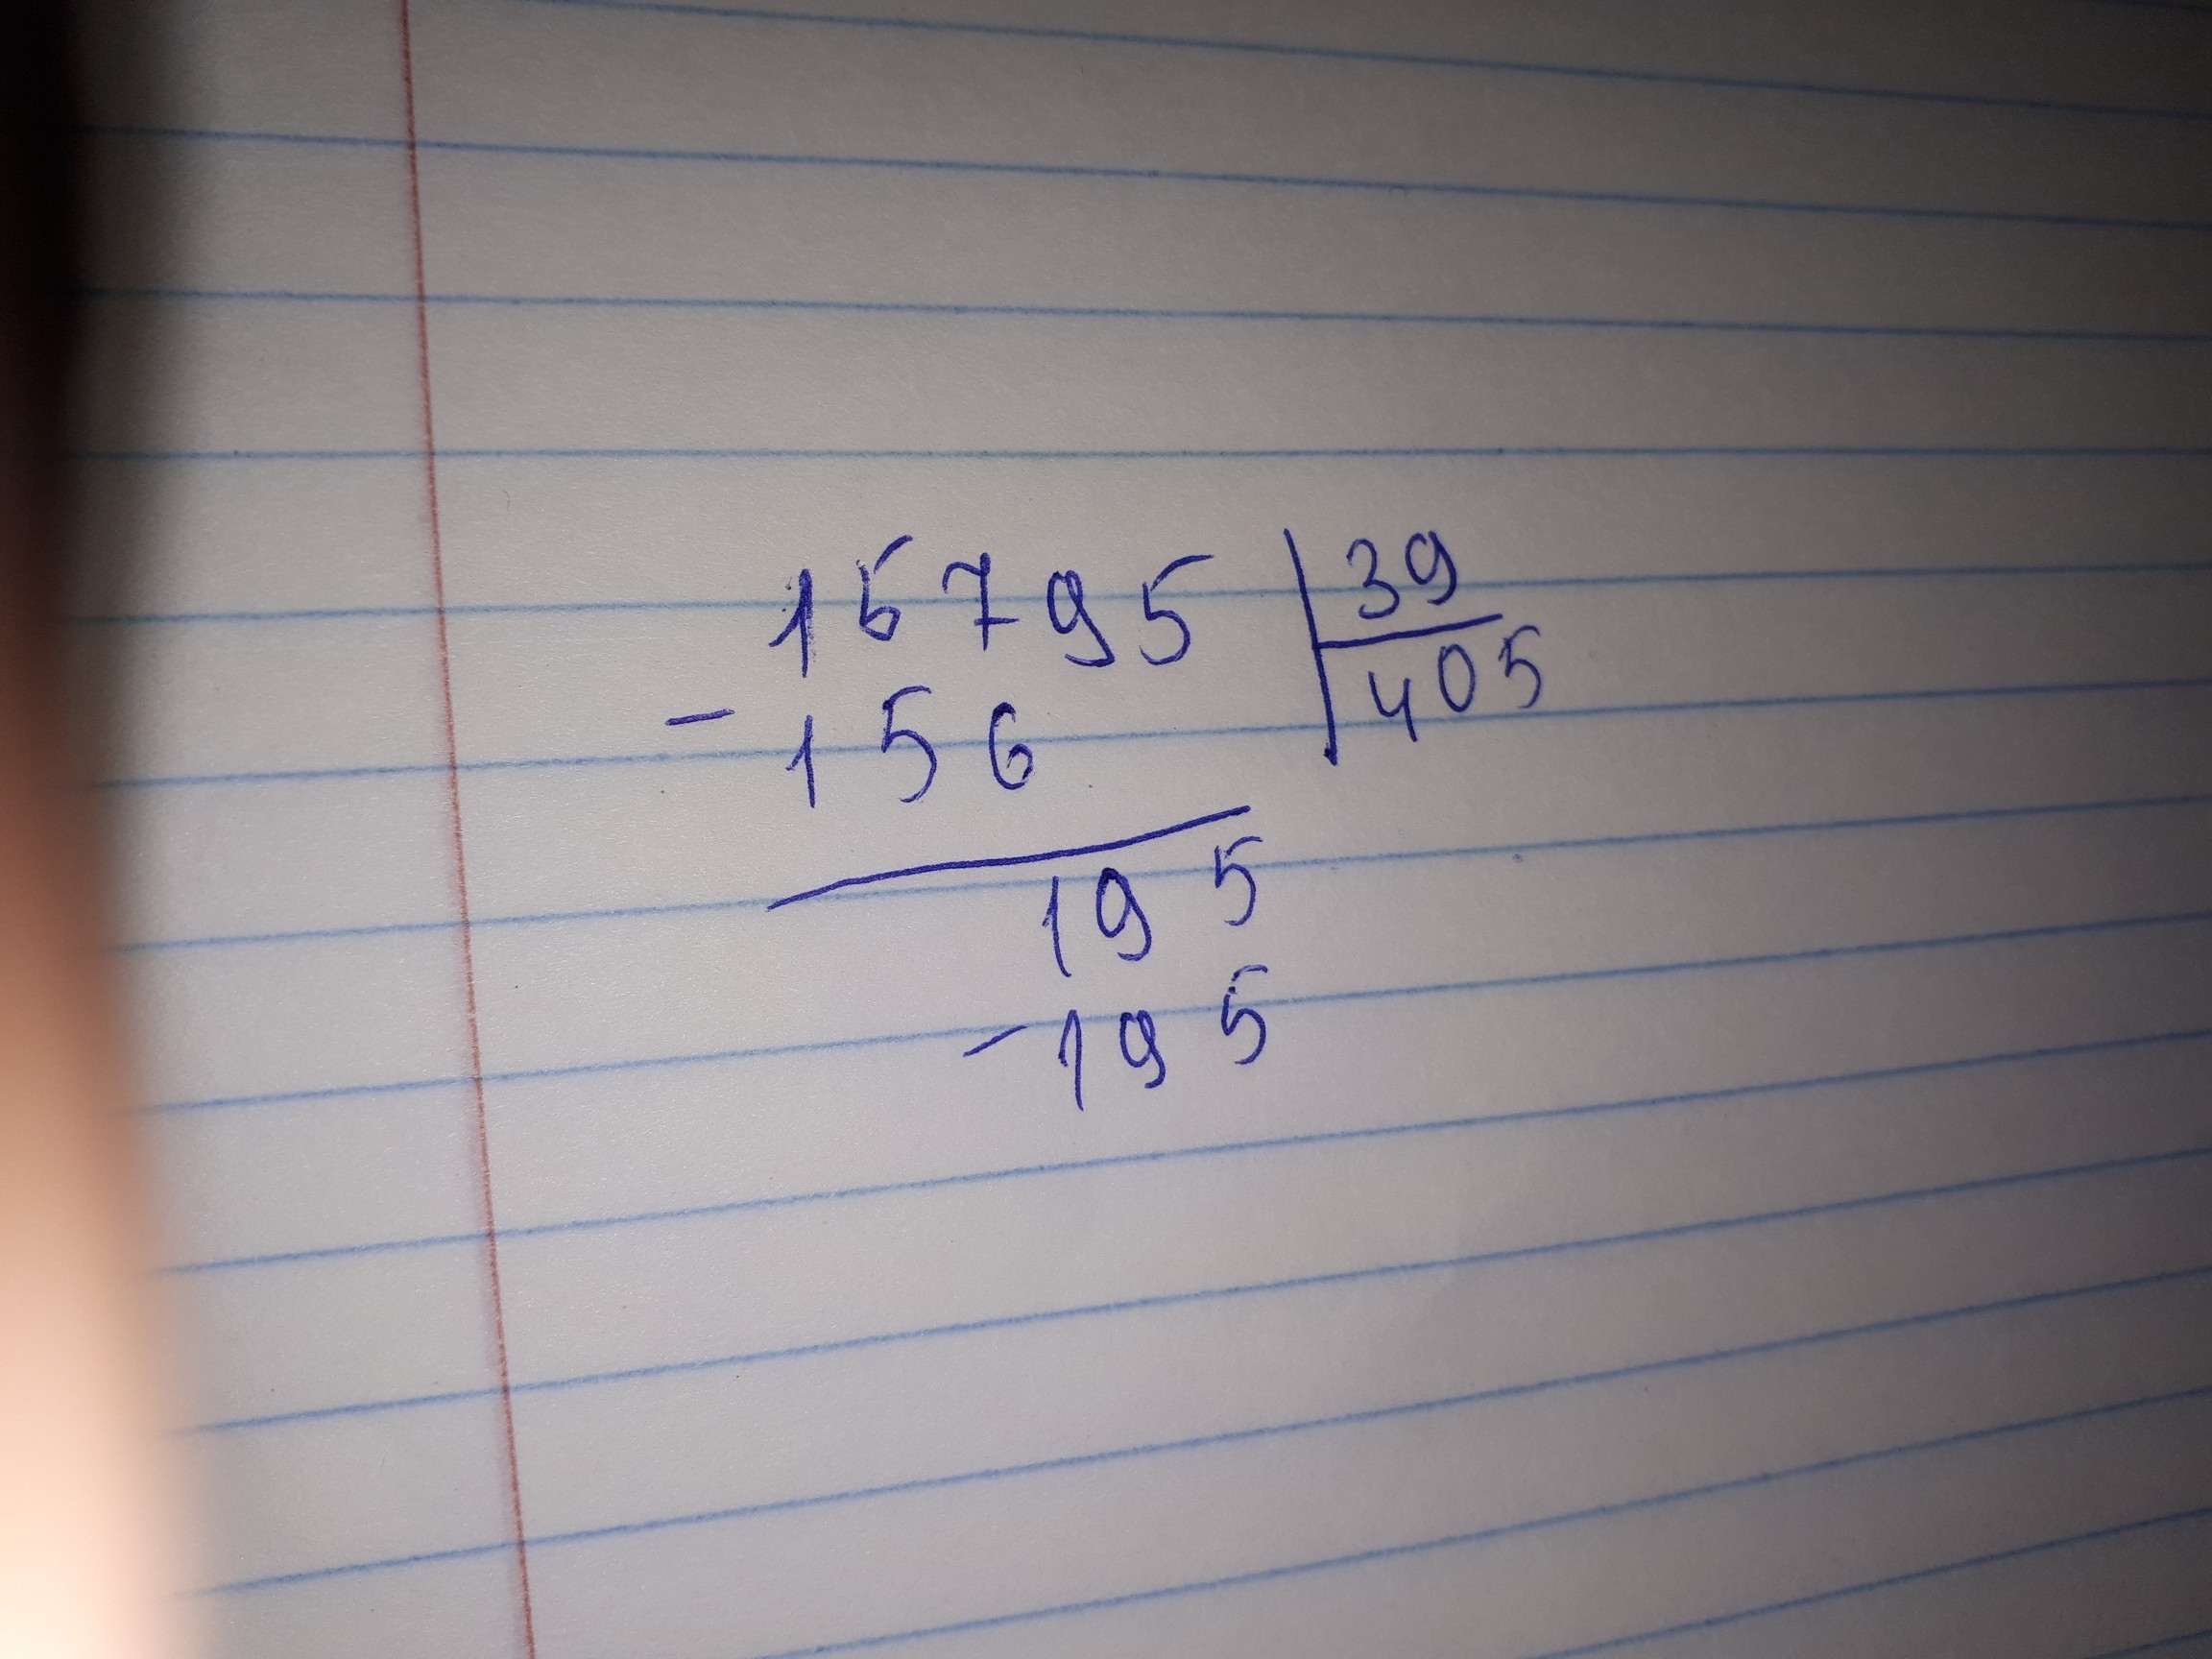 15795 | 39
- 156 | 405
195
- 195